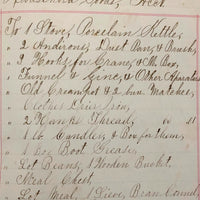 To 1 Stove, Porcelain Kettle,
" 2 Andirons, Dust Pan, & Brush,
" 3 Hooks for Crane, & M. Box,
" Funnel & Line, & Other Apparatus
" Old Cream pot & 2 bun. Matches,
" Clothes Drier Iron,
" 2 Hanks Thread,
" 1 lb Candles, & Box for them,
" 1 Box Boot Grease,
" Lot Beans, 1 Wooden Bucket.
" Meal Chest
" Lot Meal, 1 Sieve, Bran